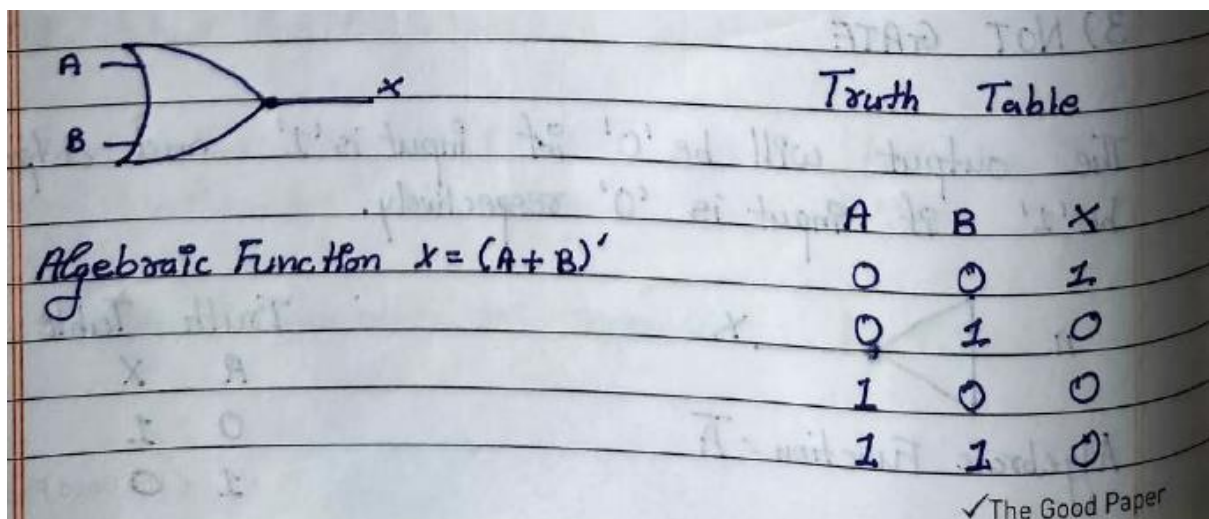 A
B
X
Truth Table
A B X
Algebraic Function X = (A + B)'
0 0 1
0 1 0
1 0 0
1 1 0
✓The Good Paper